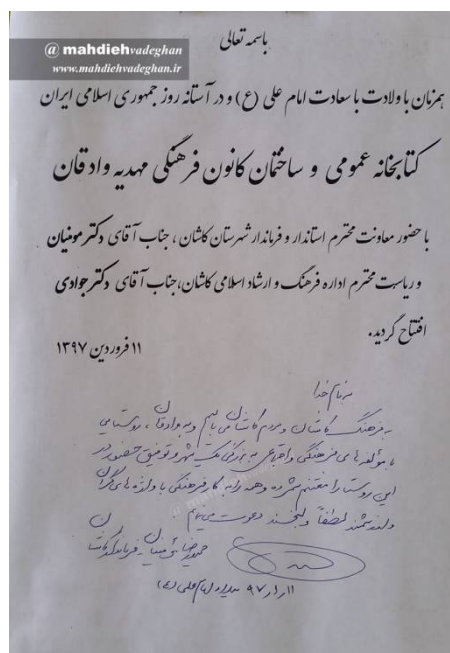 @mahdiehvadeghan
www.mahdiehvadeghan.ir
باسمه تعالی
همزمان با ولادت با سعادت امام علی (ع) و در آستانه روز جمهوری اسلامی ایران
کتابخانه عمومی و ساختمان کانون فرهنگی مهدیه وادقان
با حضور معاونت محترم استاندار و فرماندار شهرستان کاشان ، جناب آقای دکتر مومنیان
و ریاست محترم اداره فرهنگ و ارشاد اسلامی کاشان، جناب آقای دکتر جوادی
افتتاح گردید.
۱۱ فروردین ۱۳۹۷
به نام خدا
به فرهنگ کاشان و مردم کاشان می بالیم و به وادقان، روستایی
با مؤلفه های فرهنگی و اجتماعی به بزرگی یک شهر و توفیق حضور در
این روستا را مغتنم شمرده و همه را به کار فرهنگی با واژه های گران
و ارزشمند لطفاً و لبخند دعوت می نمایم
حمیدرضا مومنیان - فرماندار کاشان
۱۱/۱/۹۷ میلاد امام علی (ع)